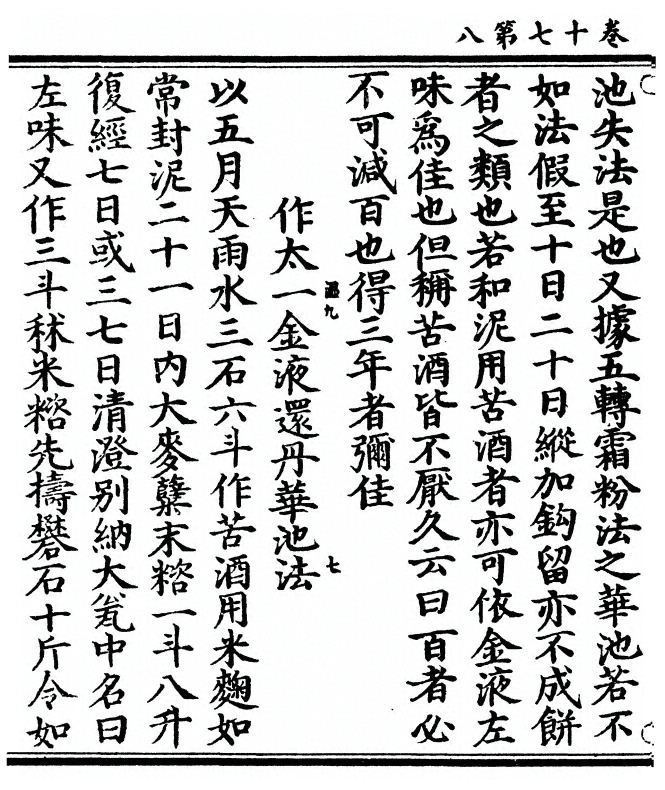 卷十七第八
池失法是也又據五轉霜粉法之華池若不
如法假至十日二十日縱加鈎留亦不成餅
者之類也若和泥用苦酒者亦可依金液左
味爲佳也但稱苦酒皆不厭久云曰百者必
不可減百也得三年者彌佳
作太一金液還丹華池法
七
以五月天雨水三石六斗作苦酒用米麴如
常封泥二十一日內大麥糵末糉一斗八升
復經七日或三七日清澄別納大瓮中名曰
左味又作三斗秫米糉先擣礬石十斤令如